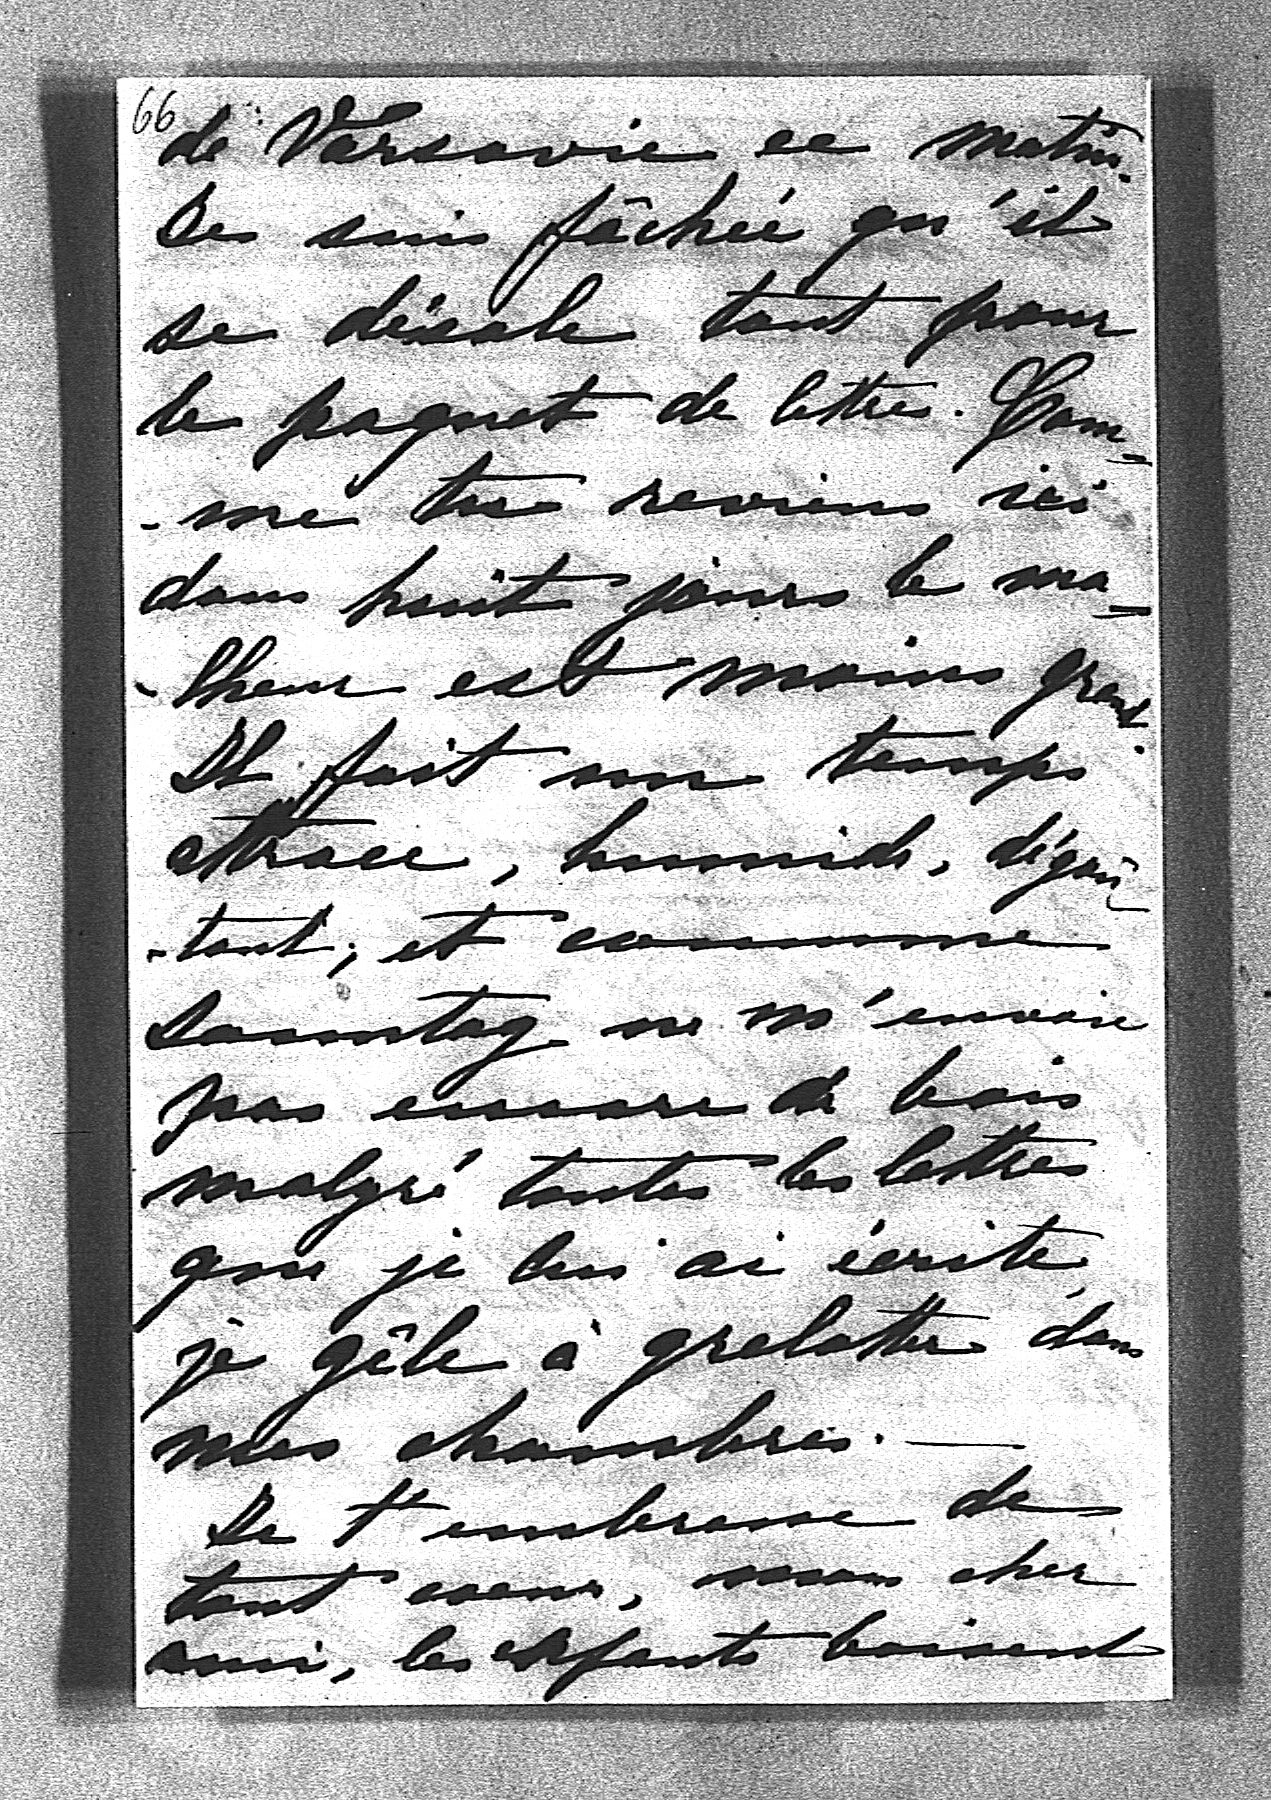 66
de Varsovie ce matin.
Je suis fâchée qu'il
se désole tant pour
le paquet de lettres. Com-
-me tu reviens ici
dans huit jours le ma-
-lheur est moins grand.
Il fait un temps
atroce, humide, dégoû-
-tant, et comme
Sonntag ne m'envoie
pas encore de bois
malgré toutes les lettres
que je lui ai écrite
je gêle à grelotter dans
mes chambres. —
Je t'embrasse de
tout coeur, mon cher
ami, les enfants baisent